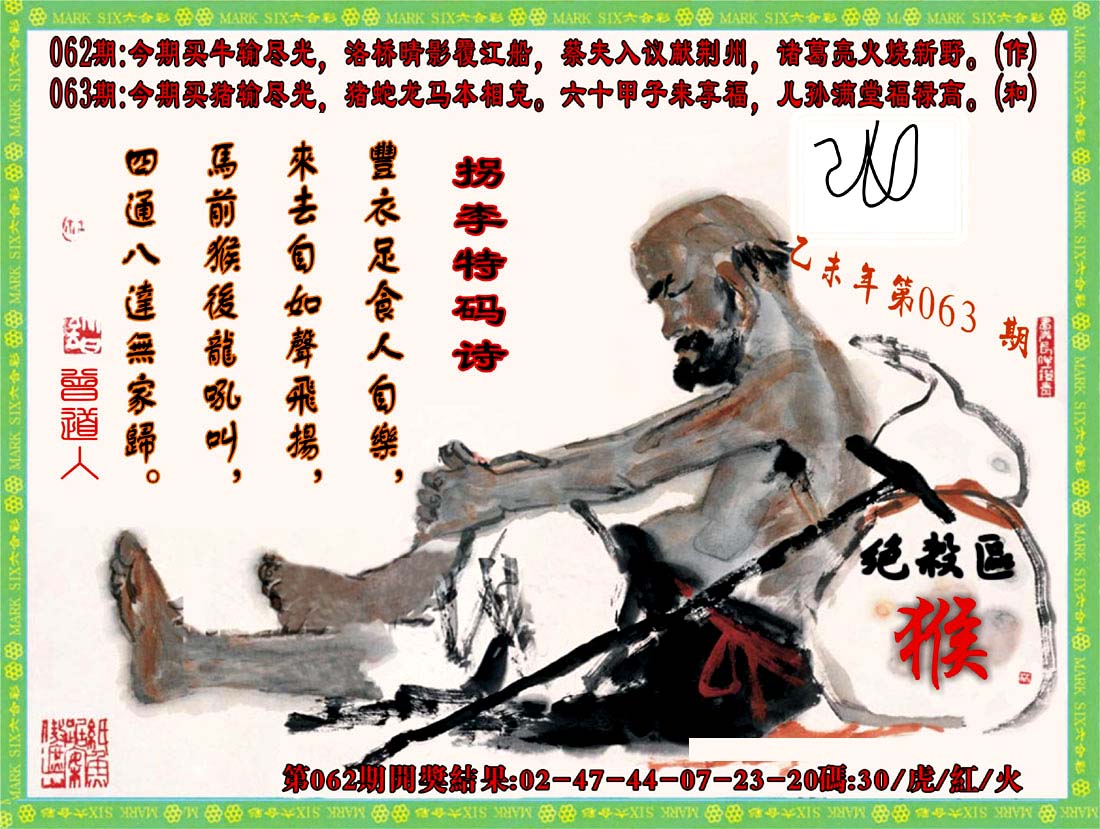 MARK SIX六合彩
062期:今期买牛输尽光，洛桥晴影覆江船，蔡夫入议献荆州，诸葛亮火烧新野。(作)
063期:今期买猪输尽光，猪蛇龙马本相克。六十甲子来享福，儿孙满堂福禄高。(和)
乙未年第063期
拐李特码诗
豐衣足食人自樂，
來去自如聲飛揚，
馬前猴後龍吼叫，
四通八達無家歸。
曾道人
绝殺區
猴
第062期開獎結果:02-47-44-07-23-20碼:30/虎/紅/火